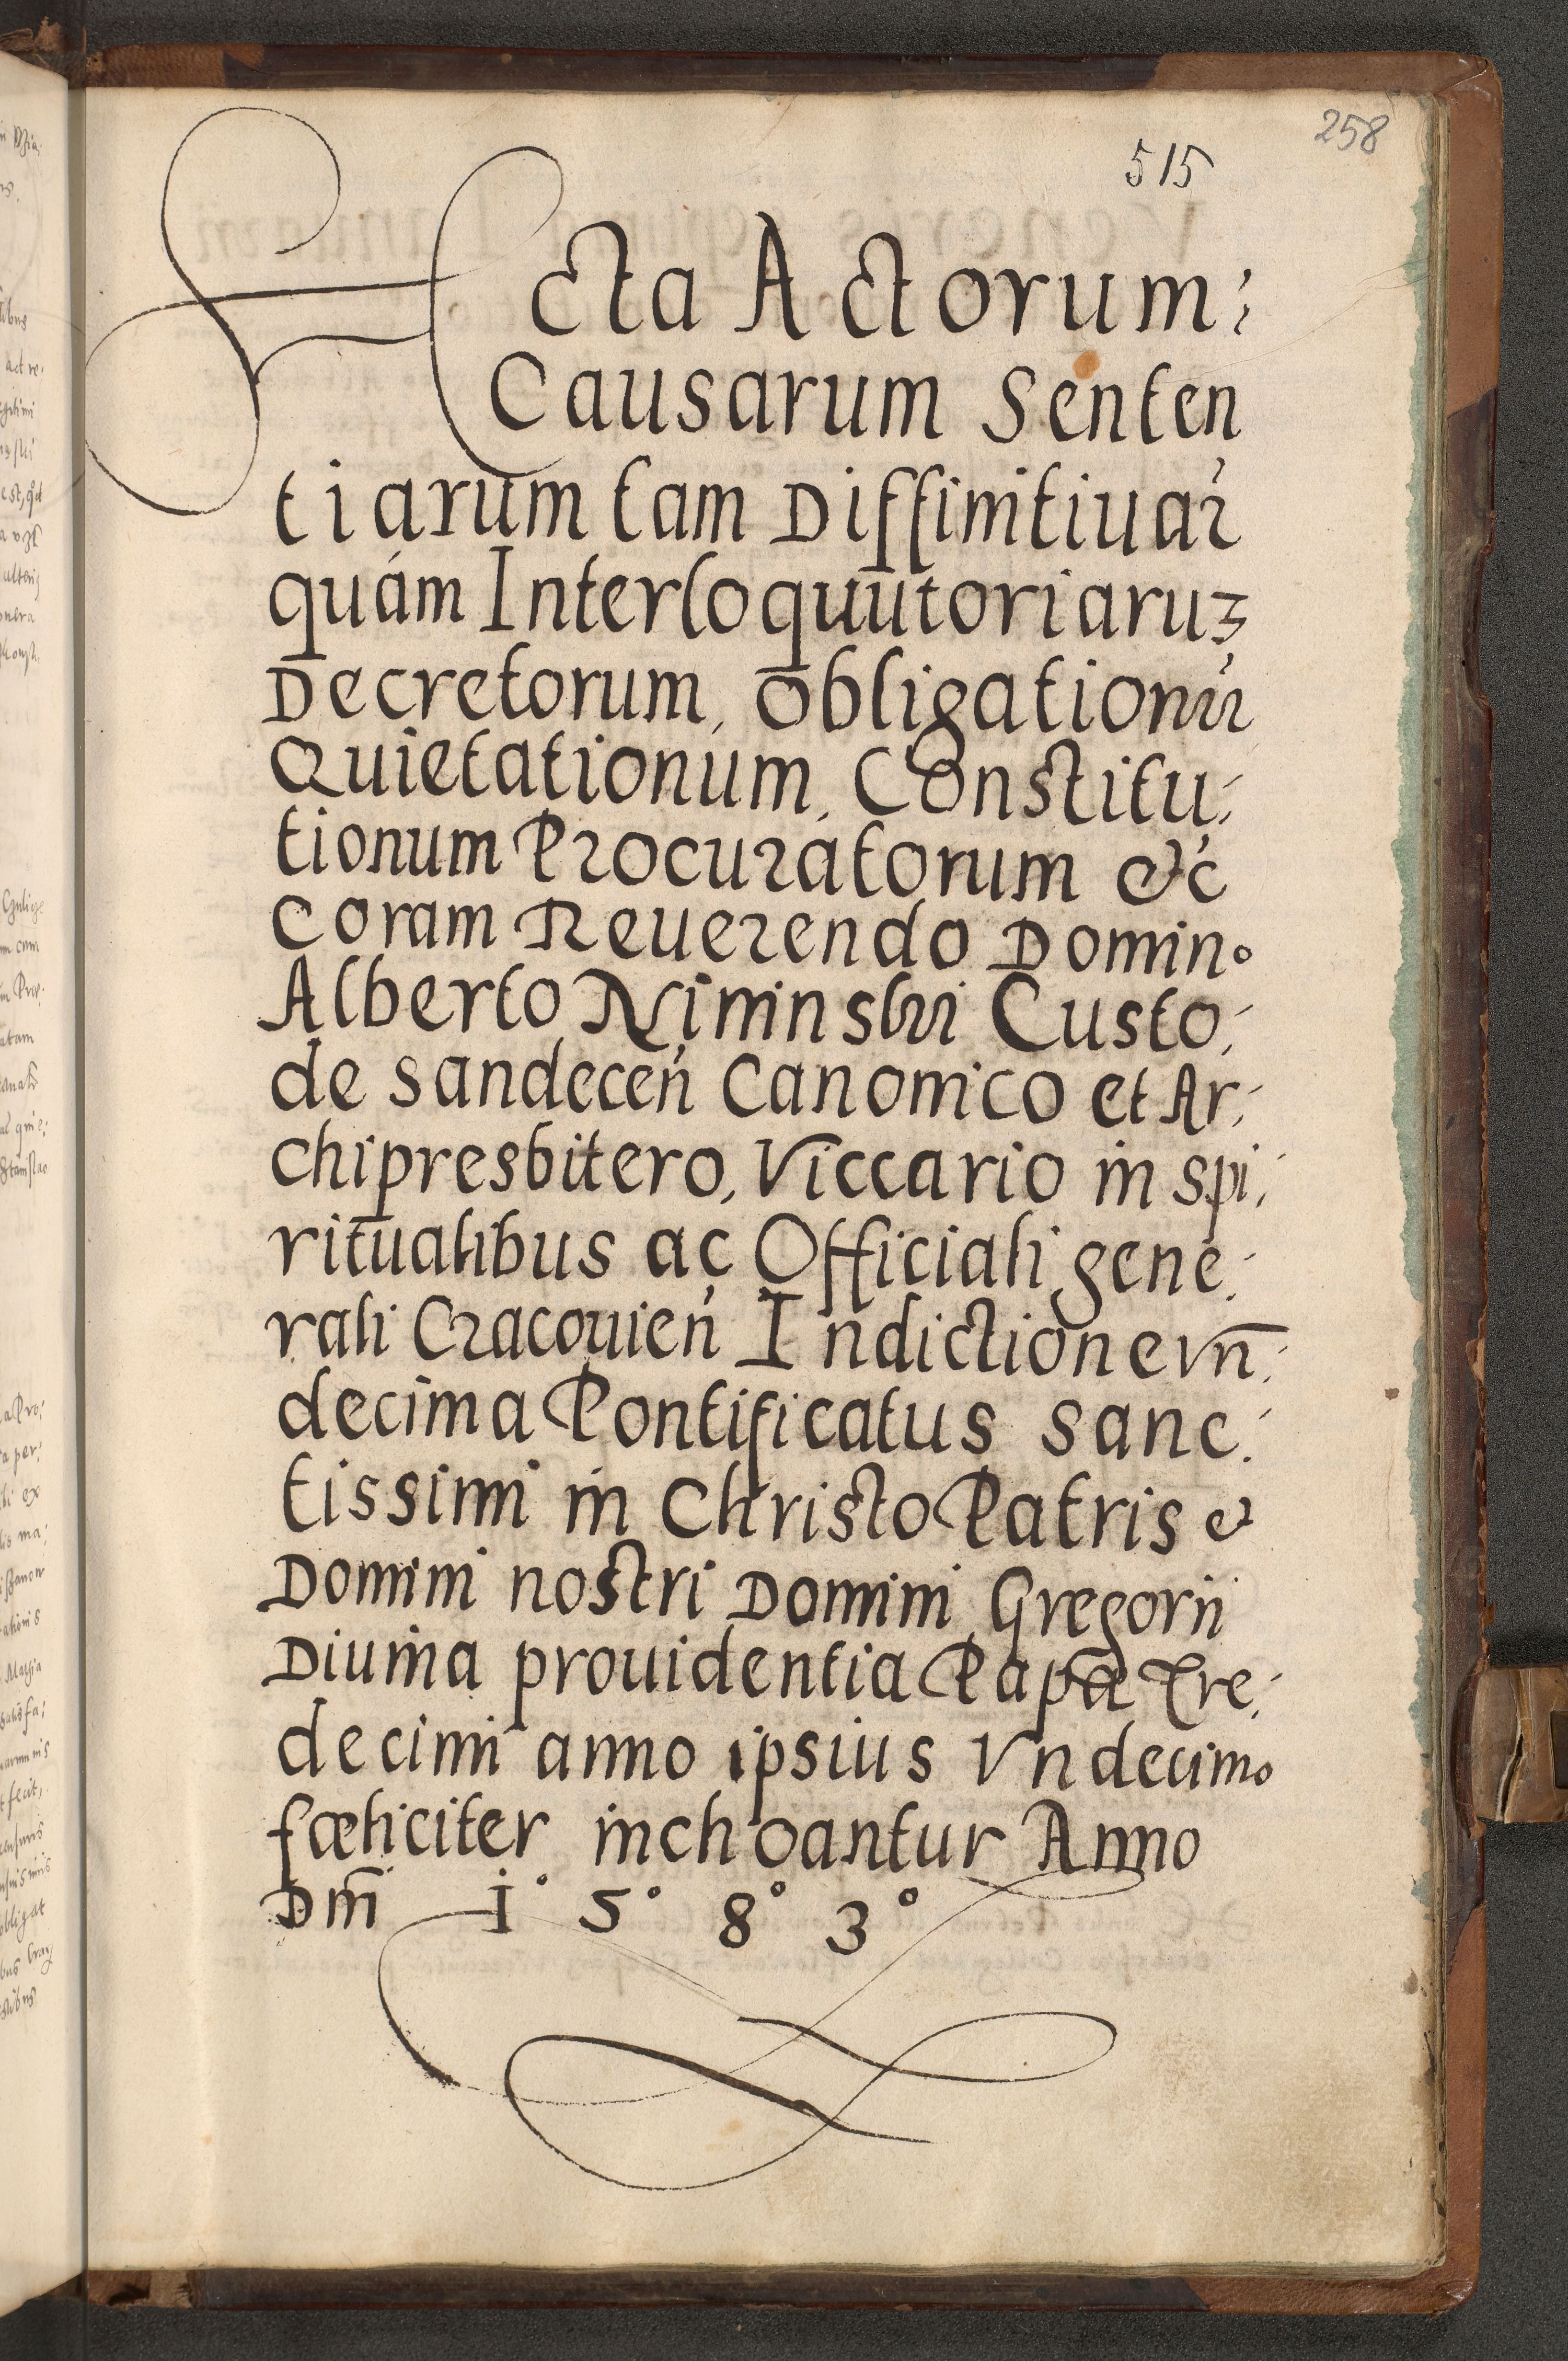 258
515
Acta Actorum:
Causarum Senten
tiarum tam Diffinitiuar
quám Interloquutoriaruʒ
Decretorum, Obligationũ
Quietationum, Constitu-
tionum Procuratorum &c
Coram Reuerendo Domino
Alberto Custo-
de Sandeceń Canonico et Ar-
chipresbitero, Viccario in spi-
ritualibus ac Officiali gene-
rali Cracouień Indictione vn̄-
decima Pontificatus Sanc-
tissimi in Christo Patris &
Domini nostri Domini Gregorii
Diuina prouidentia Papæ Tre-
decimi anno ipsius Vndecimo
fœliciter inchoantur Anno
Dm̃ 1° 5° 8° 3°